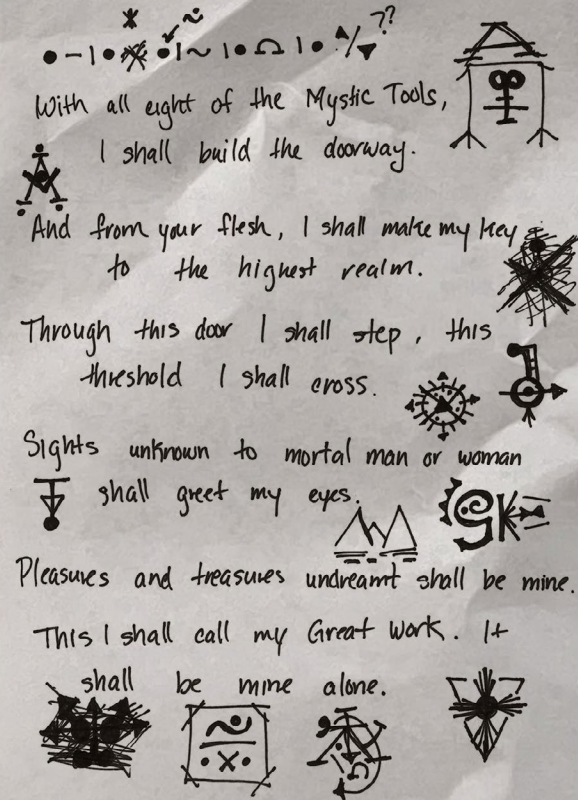 ??
With all eight of the Mystic Tools,
I shall build the doorway.
And from your flesh, I shall make my key
to the highest realm.
Through this door I shall step, this
threshold I shall cross.
Sights unknown to mortal man or woman
shall greet my eyes.
Pleasures and treasures undreamt shall be mine.
This I shall call my Great Work. It
shall be mine alone.